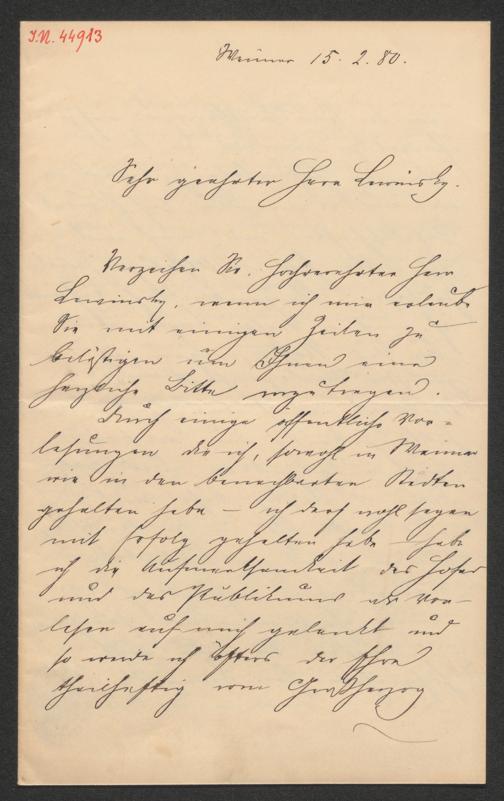 I.N. 44913
Weimar 15. 2. 80.
Sehr geehrter Herr Lewinsky.
Verzeihen Sie, hochverehrter Herr
Lewinsky, wenn ich mir erlaube
Sie mit einigen Zeilen zu
belästigen um Ihnen eine
herzliche Bitte vorzutragen.
Durch einige öffentliche Vor=
lesungen die ich, sowohl in Weimar
wie in den benachbarten Städten
gehalten habe – ich darf wohl sagen
mit Erfolg gehalten habe – habe
ich die Aufmerksamkeit des Hofes
und des Publikums als Vor=
leser auf mich gelenkt und
so werde ich öfters der Ehre
theilhaftig vom Großherzog